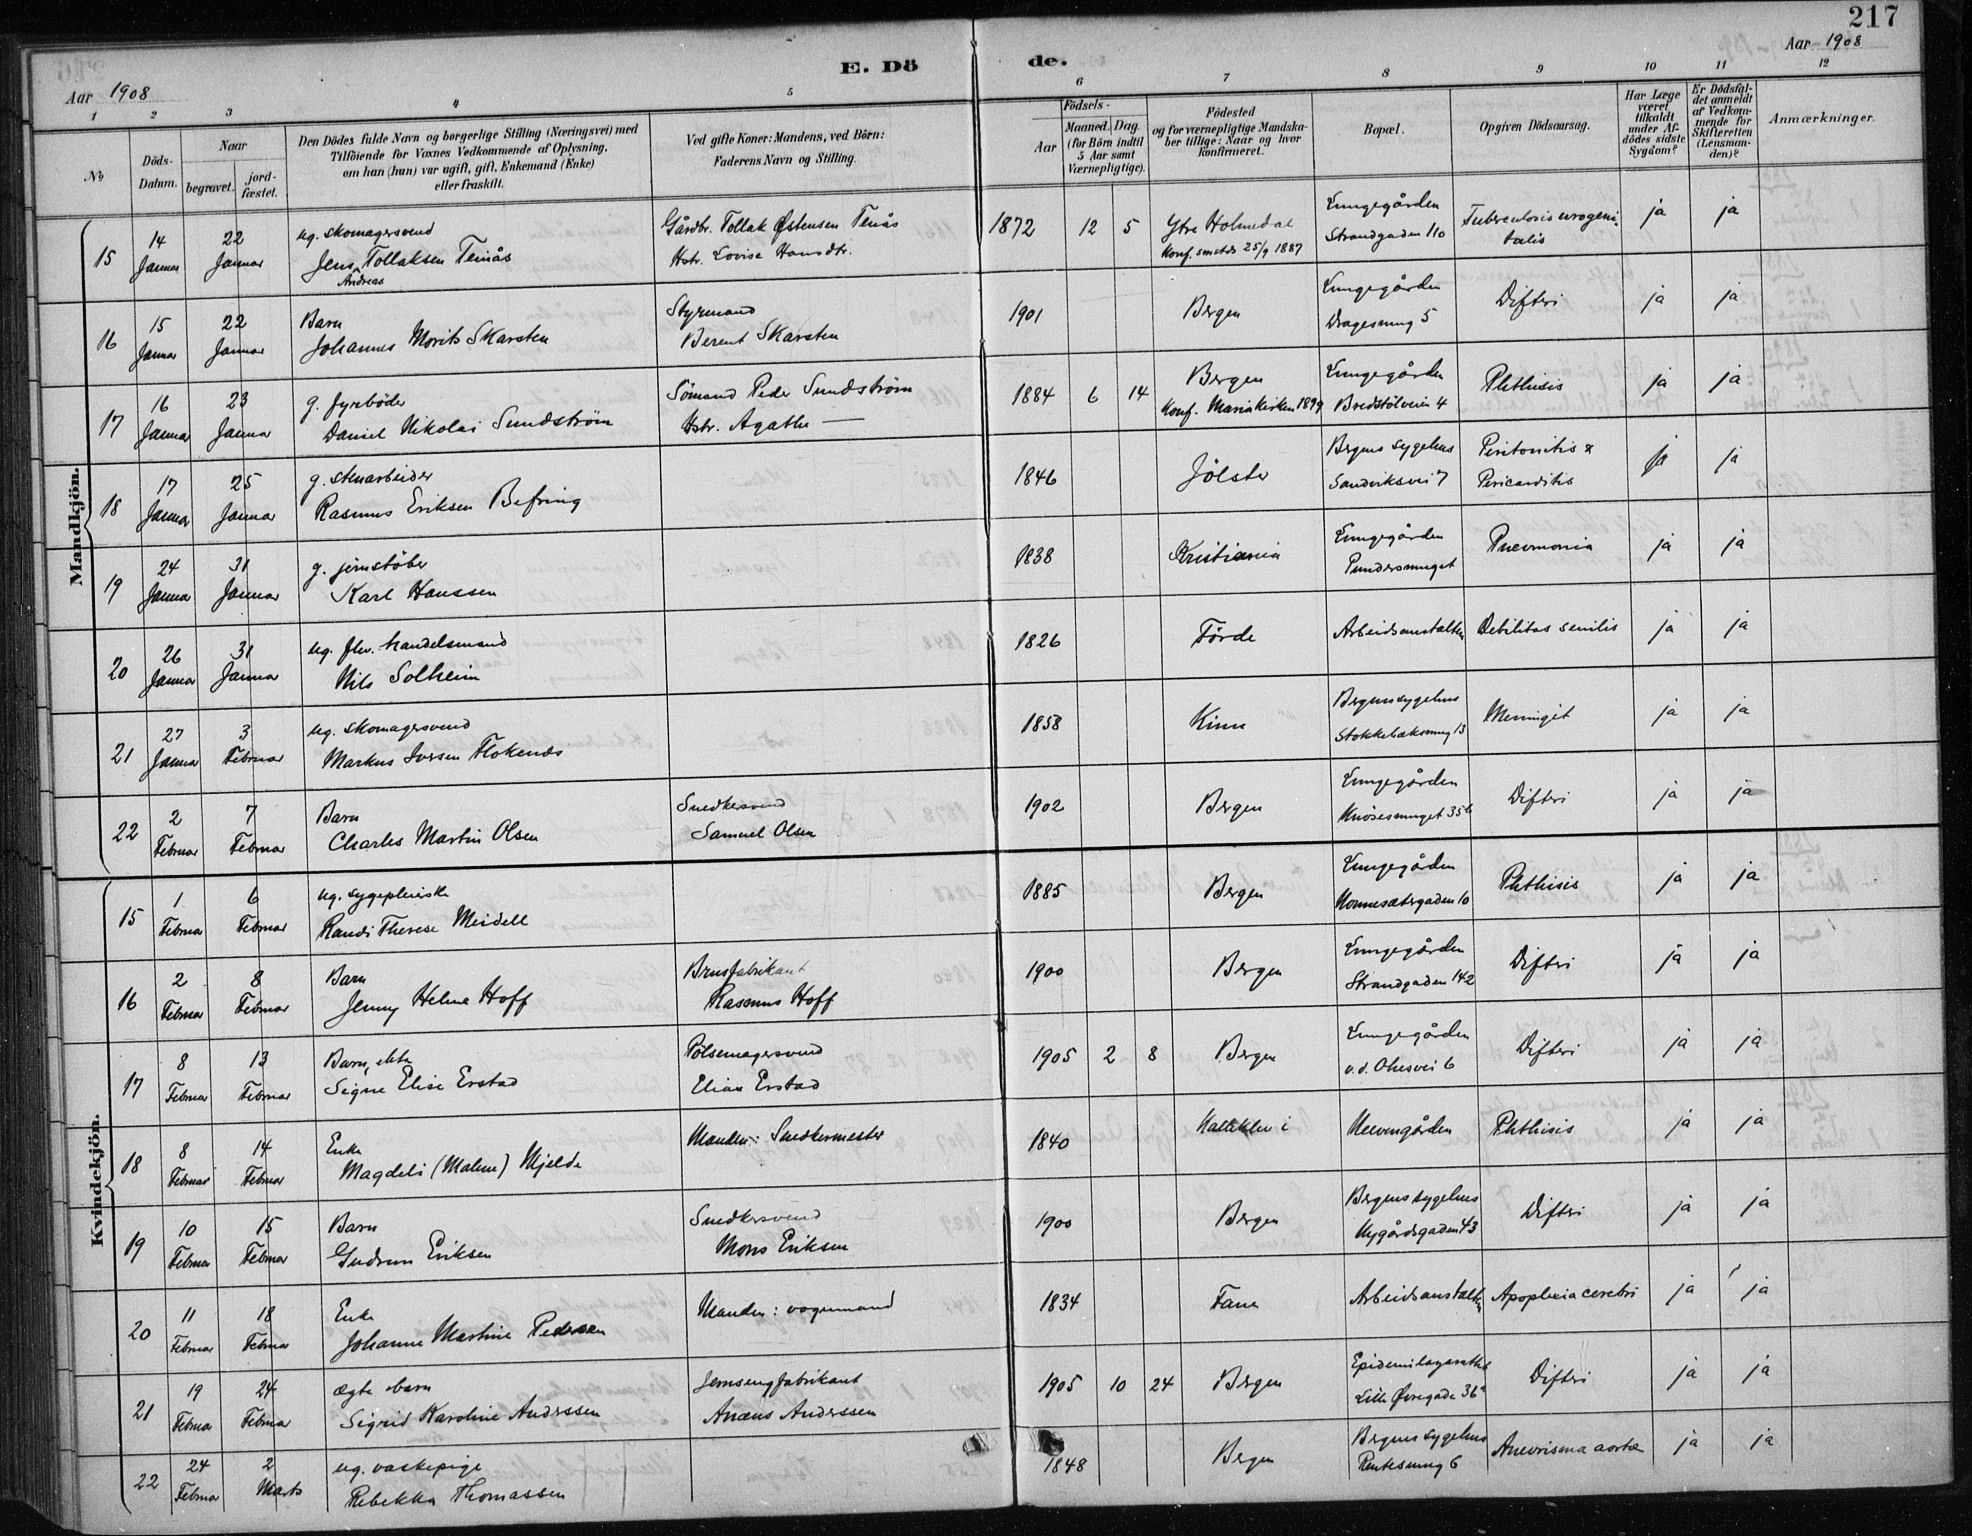 217
E. Dö
de.
Aar 1908
Aar 1908
1 2 3 4 5 6 7 8 9 10 11 12
No
Döds-
Datum.
Naar
begravet.
jord-
fæstet.
Den Dödes fulde Navn og borgerlige Stilling (Næringsvei) med
Tilföiende for Voxnes Vedkommende af Oplysning,
om han (hun) var ugift, gift, Enkemand (Enke)
eller fraskilt.
Ved gifte Koner: Mandens, ved Börn:
Faderens Navn og Stilling.
Födsels-
Aar
Maaned. Dag.
(for Börn indtil
5 Aar samt
Værnepligtige).
Födested
og for værnepligtige Mandska-
ber tillige: Naar og hvor
konfirmeret.
Bopæl.
Opgiven Dödsaarsag.
Har Læge
været
tilkaldt
under Af-
dödes sidste
Sygdom?
Er Dödsfal-
det anmeldt
af Vedkom-
mende for
Skifteretten
(Lensman-
den)?
Anmærkninger.
Mandkjön.
15 14 Januar 22 Januar ug. skomagersvend Gårdbr. Tollak Østensen Tenås 1872 12 5 Ytre Holmedal Lungegården Tuberculosis urogeni- ja ja
Jens Tollaksen Tenås Hstr. Lovise Hansdtr. Konf. smstds 25/9 1887 Strandgaden 110 talis
Andreas
16 15 Januar 22 Januar Barn Styrmand 1901 Bergen Lungegården Difteri ja ja
Johannes Morits Skarsten Berent Skarsten Dragesmug 5
17 16 Januar 23 Januar g. fyrböder Sömand Peder Sundström 1884 6 14 Bergen Lungegården Phthisis ja ja
Daniel Nikolai Sundström Hstr. Agathe — Konf. Mariakirken 1899 Bredstölveien 4
18 17 Januar 25 Januar g. stenarbeider 1846 Jölster Bergens sygehus Peritonitis & ja ja
Rasmus Eriksen Befring Sandviksvei 7 Pericarditis
19 24 Januar 31 Januar g. jernstöber 1838 Kristiania Lungegården Pneumonia ja ja
Karl Hanssen Pundersmuget
20 26 Januar 31 Januar ug. fhv. handelsmand 1826 Förde Arbeidsanstalten Debilitas senilis ja ja
Nils Solheim
21 27 Januar 3 Februar ug. skomagersvend 1858 Kinn Bergens sygehus Meningit ja ja
Markus Iversen Flokenæs Stokkebaksmug 13
22 2 Februar 7 Februar Barn Snedkersvend 1902 Bergen Lungegården Difteri ja ja
Charles Martin Olsen Samuel Olsen Knösesmuget 35b
Kvindekjön.
15 1 Februar 6 Februar ug. sygepleierske 1885 Bergen Lungegården Phthisis ja ja
Randi Therese Meidell Nonnesætergaden 10
16 2 Februar 8 Februar Barn Brusfabrikant 1900 Bergen Lungegården Difteri ja ja
Jenny Helene Hoff Rasmus Hoff Strandgaden 142
17 8 Februar 13 Februar Barn, ekte Pölsemagersvend 1905 2 8 Bergen Lungegården Difteri ja ja
Signe Elise Erstad Elias Erstad v.d. Ohesvei 6
18 8 Februar 14 Februar Enke Manden: Snedkermester 1840 Phthisis ja ja
Magdeli (Malene) Mjelde
19 10 Februar 15 Februar Barn Snedkersvend 1900 Bergen Bergens sygehus Difteri ja ja
Gudrun Eriksen Mons Eriksen Nygårdsgaden 43
20 11 Februar 18 Februar Enke Manden: vognmand 1834 Fane Arbeidsanstalten Apoplexia cerebri ja ja
Johanne Martine Pedersen
21 19 Februar 24 Februar ægte barn Jernsengfabrikant 1905 10 24 Bergen Epidemilazarethet Difteri ja ja
Sigrid Karoline Anderssen Anæus Anderssen Lille Øvregade 36a
22 24 Februar 2 Marts ug. vaskepige 1848 Bergen Bergens sygehus Aneurisma aortæ ja ja
Rebekka Thomassen Rentesmug 6